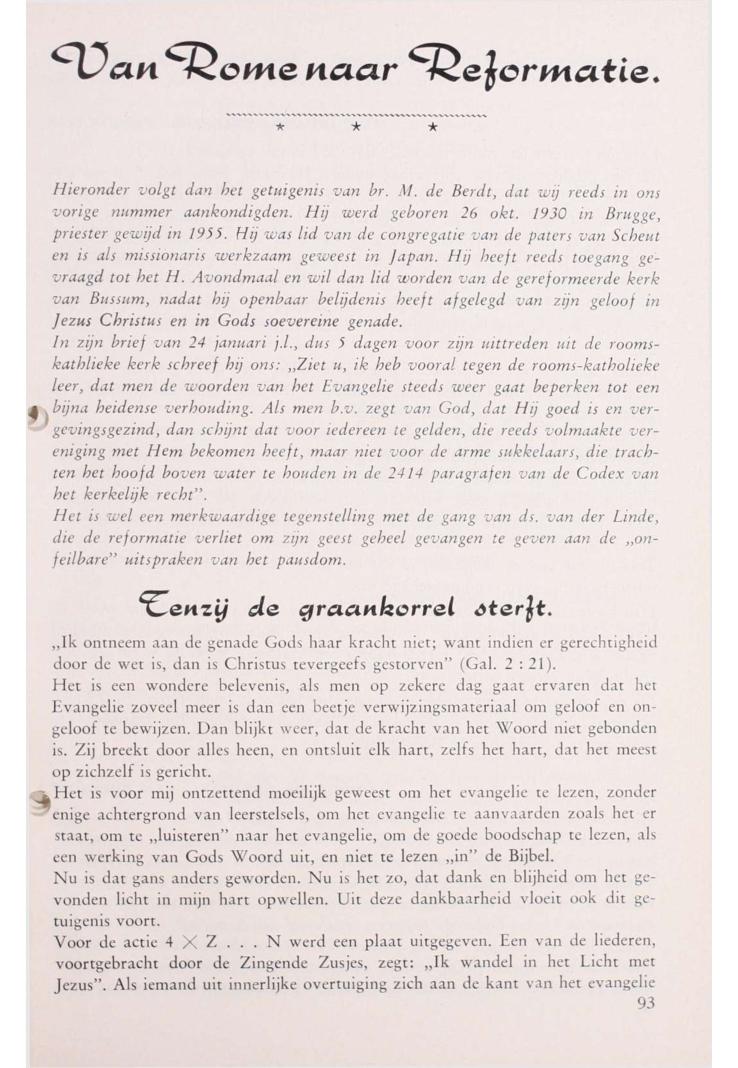 Van Rome naar Reformatie.
* * *
Hieronder volgt dan het getuigenis van br. M. de Berdt, dat wij reeds in ons
vorige nummer aankondigden. Hij werd geboren 26 okt. 1930 in Brugge,
priester gewijd in 1955. Hij was lid van de congregatie van de paters van Scheut
en is als missionaris werkzaam geweest in Japan. Hij heeft reeds toegang ge-
vraagd tot het H. Avondmaal en wil dan lid worden van de gereformeerde kerk
van Bussum, nadat hij openbaar belijdenis heeft afgelegd van zijn geloof in
Jezus Christus en in Gods soevereine genade.
In zijn brief van 24 januari j.l., dus 5 dagen voor zijn uittreden uit de rooms-
kathlieke kerk schreef hij ons: „Ziet u, ik heb vooral tegen de rooms-katholieke
leer, dat men de woorden van het Evangelie steeds weer gaat beperken tot een
bijna heidense verhouding. Als men b.v. zegt van God, dat Hij goed is en ver-
gevingsgezind, dan schijnt dat voor iedereen te gelden, die reeds volmaakte ver-
eniging met Hem bekomen heeft, maar niet voor de arme sukkelaars, die trach-
ten het hoofd boven water te houden in de 2414 paragrafen van de Codex van
het kerkelijk recht”.
Het is wel een merkwaardige tegenstelling met de gang van ds. van der Linde,
die de reformatie verliet om zijn geest geheel gevangen te geven aan de „on-
feilbare” uitspraken van het pausdom.
Tenzij de graankorrel sterft.
„Ik ontneem aan de genade Gods haar kracht niet; want indien er gerechtigheid
door de wet is, dan is Christus tevergeefs gestorven” (Gal. 2 : 21).
Het is een wondere belevenis, als men op zekere dag gaat ervaren dat het
Evangelie zoveel meer is dan een beetje verwijzingsmateriaal om geloof en on-
geloof te bewijzen. Dan blijkt weer, dat de kracht van het Woord niet gebonden
is. Zij breekt door alles heen, en ontsluit elk hart, zelfs het hart, dat het meest
op zichzelf is gericht.
Het is voor mij ontzettend moeilijk geweest om het evangelie te lezen, zonder
enige achtergrond van leerstelsels, om het evangelie te aanvaarden zoals het er
staat, om te „luisteren” naar het evangelie, om de goede boodschap te lezen, als
een werking van Gods Woord uit, en niet te lezen „in” de Bijbel.
Nu is dat gans anders geworden. Nu is het zo, dat dank en blijheid om het ge-
vonden licht in mijn hart opwellen. Uit deze dankbaarheid vloeit ook dit ge-
tuigenis voort.
Voor de actie 4 × Z . . . N werd een plaat uitgegeven. Een van de liederen,
voortgebracht door de Zingende Zusjes, zegt: „Ik wandel in het Licht met
Jezus”. Als iemand uit innerlijke overtuiging zich aan de kant van het evangelie
93